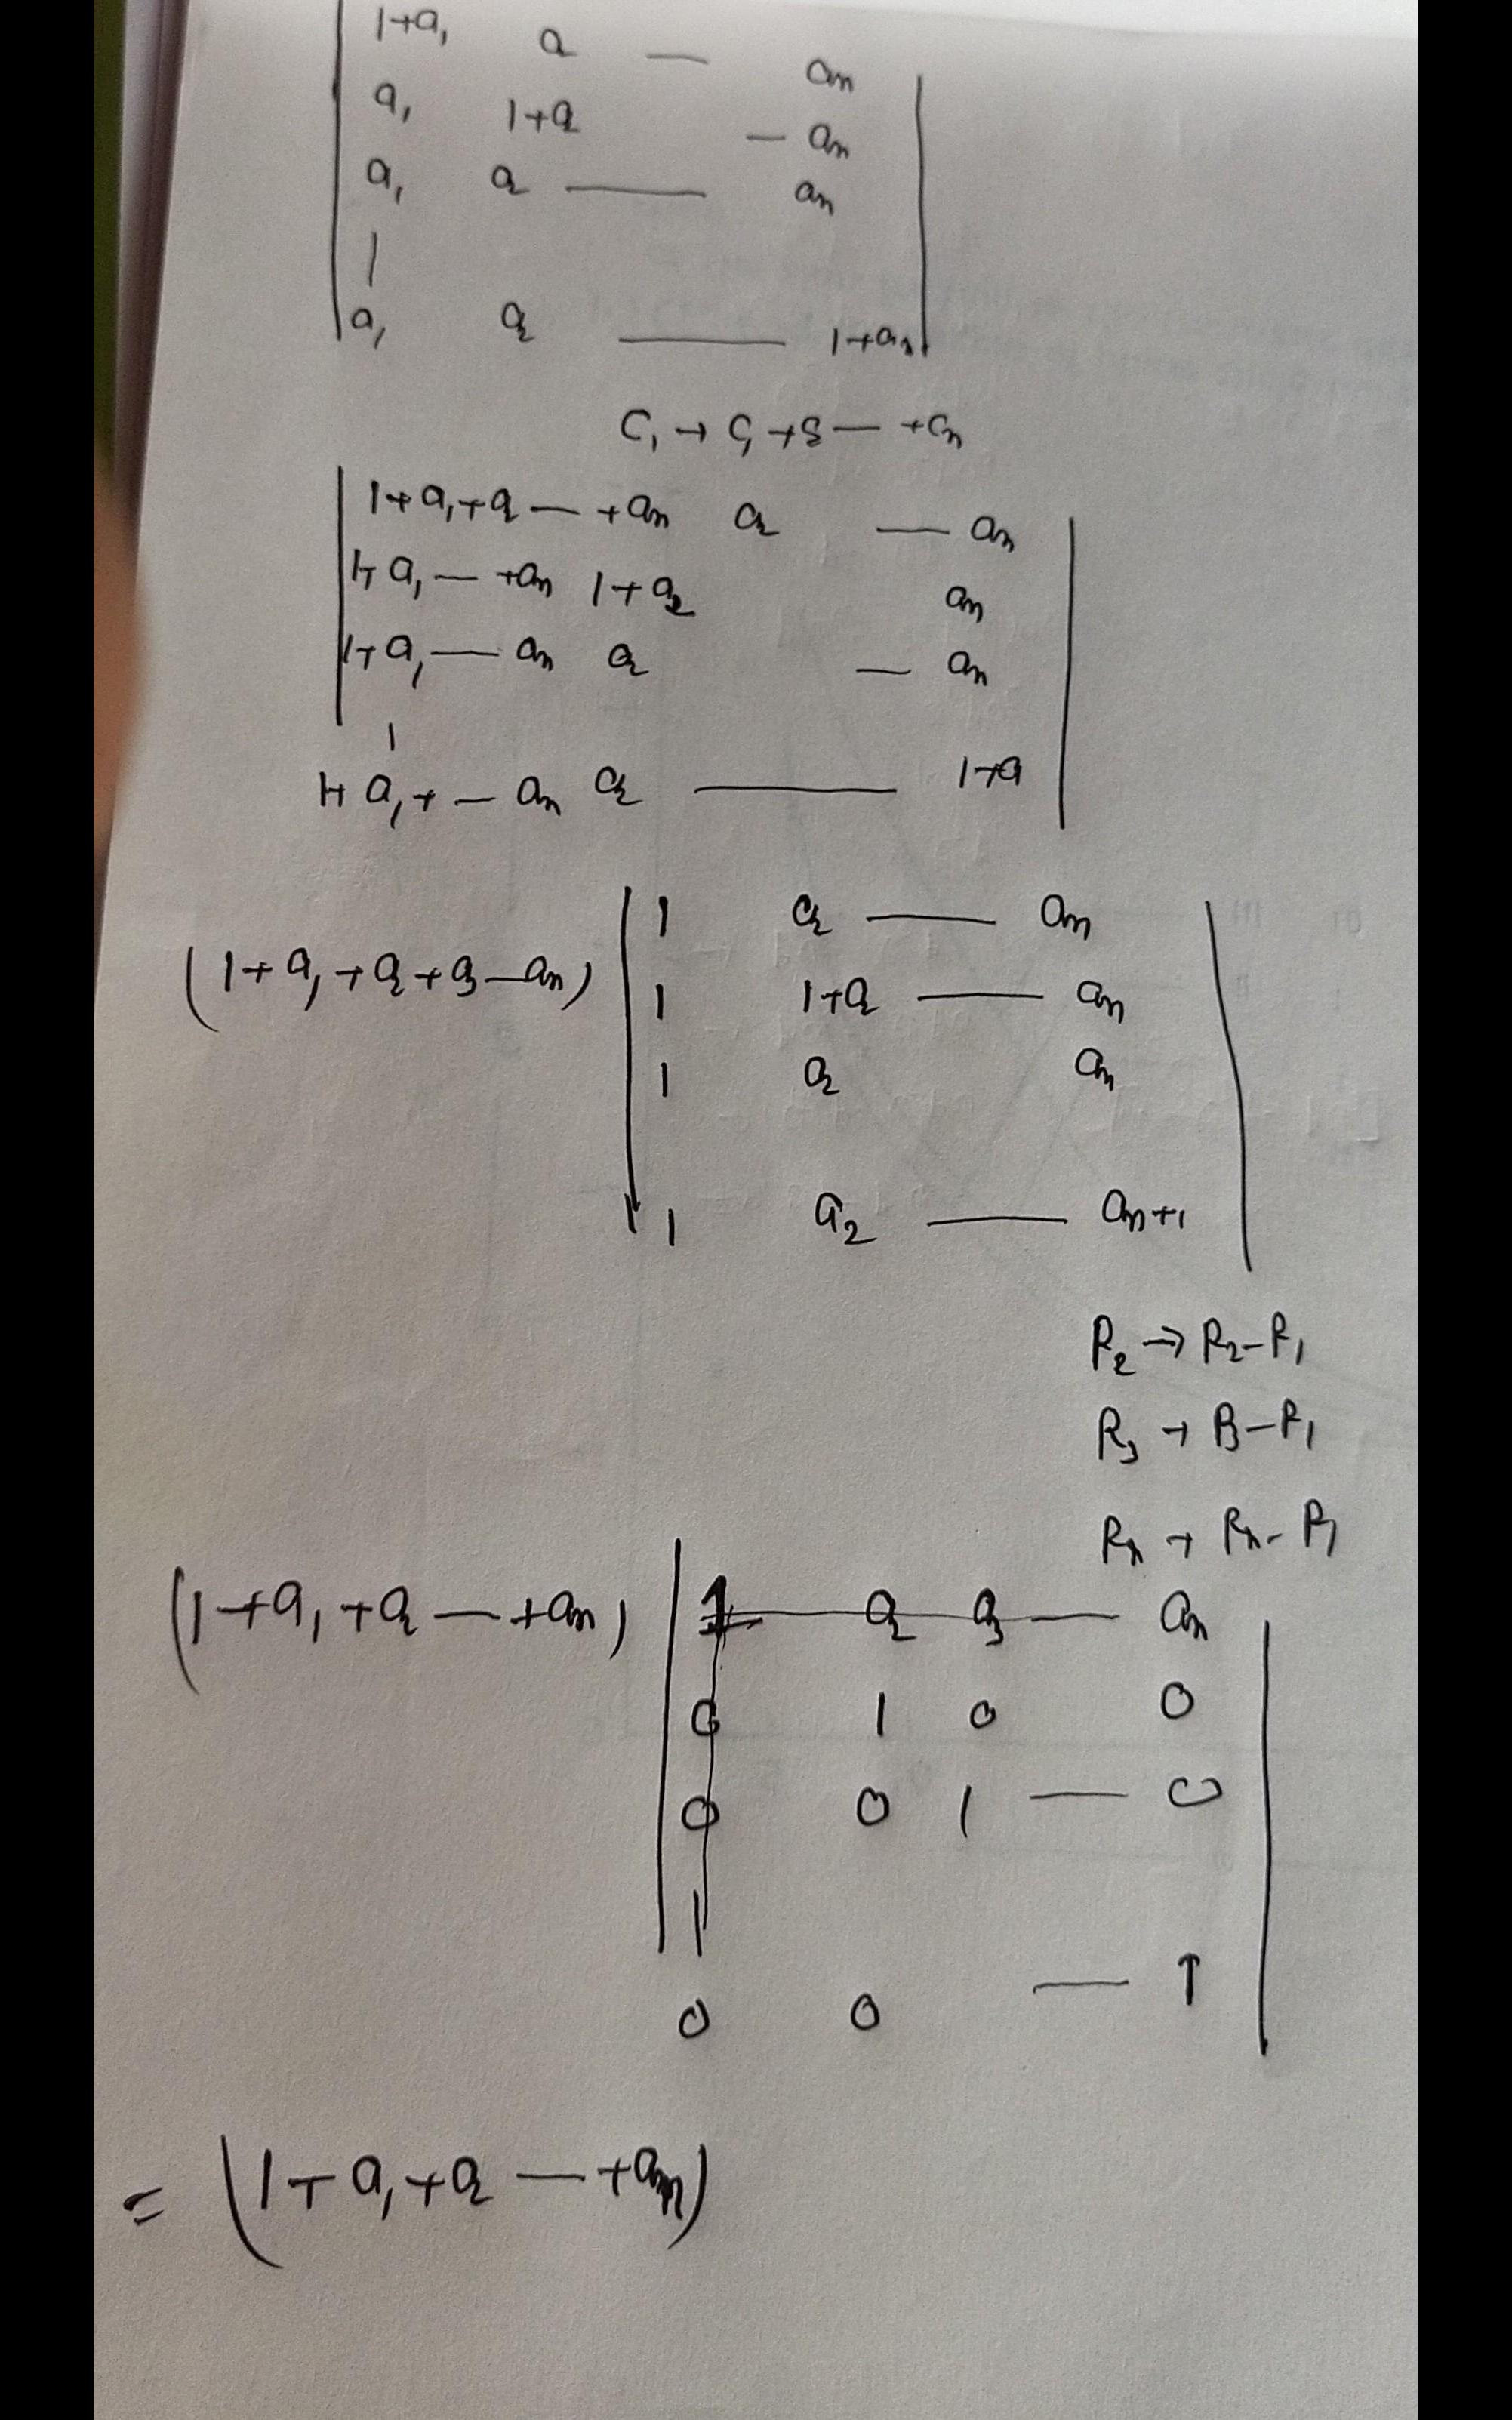 1+a₁ a — an
a₁ 1+a₂ — an
a₁ a₂ — an
|
a₁ a₂ — 1+an
C₁ → C₁+C₂ — +Cn
1+a₁+a₂ — +an a₂ — an
1+a₁ — +an 1+a₂ an
1+a₁ — an a₂ — an
|
1+a₁+ — an a₂ — 1+a
1 a₂ — an
(1+a₁+a₂+a₃—an) 1 1+a₂ — an
1 a₂ an
1 a₂ — an+1
R₂ → R₂-R₁
R₃ → R₃-R₁
Rn → Rn-R₁
(1+a₁+a₂ — +an) 1 a₂ a₃ — an
0 1 0 0
0 0 1 — 0
|
0 0 — 1
= (1+a₁+a₂ — +an)